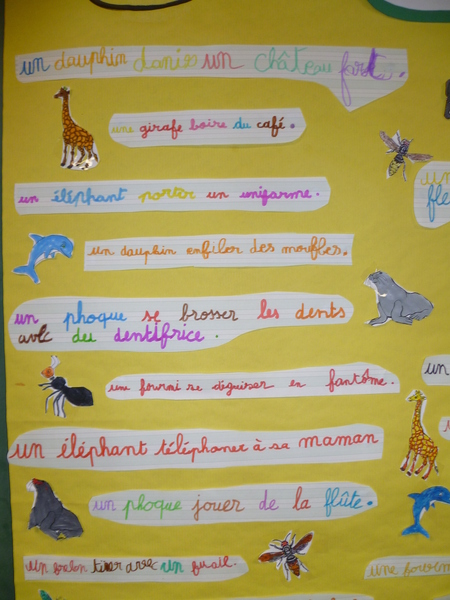 un dauphin dans un château fort.
une girafe boire du café.
un
fle
un éléphant porter un uniforme.
un dauphin enfiler des moufles.
un phoque se brosser les dents
avec du dentifrice.
un
une fourmi se déguiser en fantôme.
un éléphant téléphoner à sa maman
un phoque jouer de la flûte.
un frelon tirer avec un fusil.
une fourmi